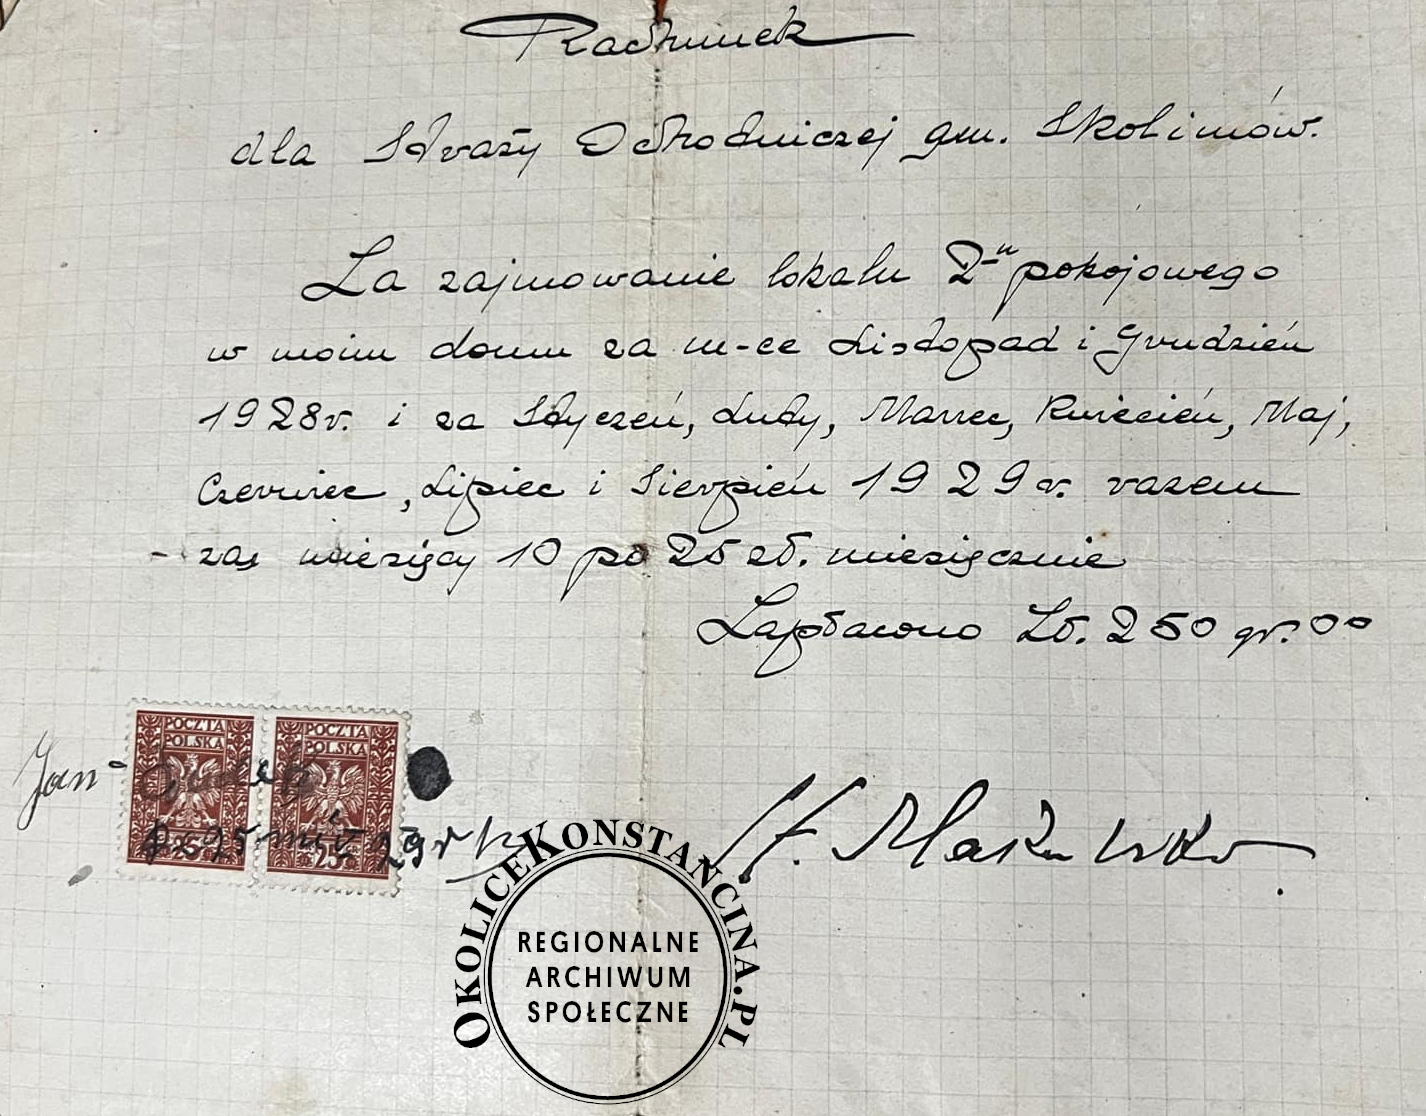 Rachunek
dla Straży Ochodniczej gm. Skolimów.
Za zajmowanie lokalu 2-u pokojowego
w moim domu za m-ce Listopad i Grudzień
1928r. i za Styczeń, Luty, Marzec, Kwiecień, Maj,
Czerwiec, Lipiec i Sierpień 1929r. razem
zaś miesięcy 10 po 25 zł. miesięcznie
Zapłacono Zł. 250 gr. 00
POCZTA POLSKA
POCZTA POLSKA
Jan
25
25
29 r
St.
OKOLICEKONSTANCINA.PL
REGIONALNE
ARCHIWUM
SPOŁECZNE